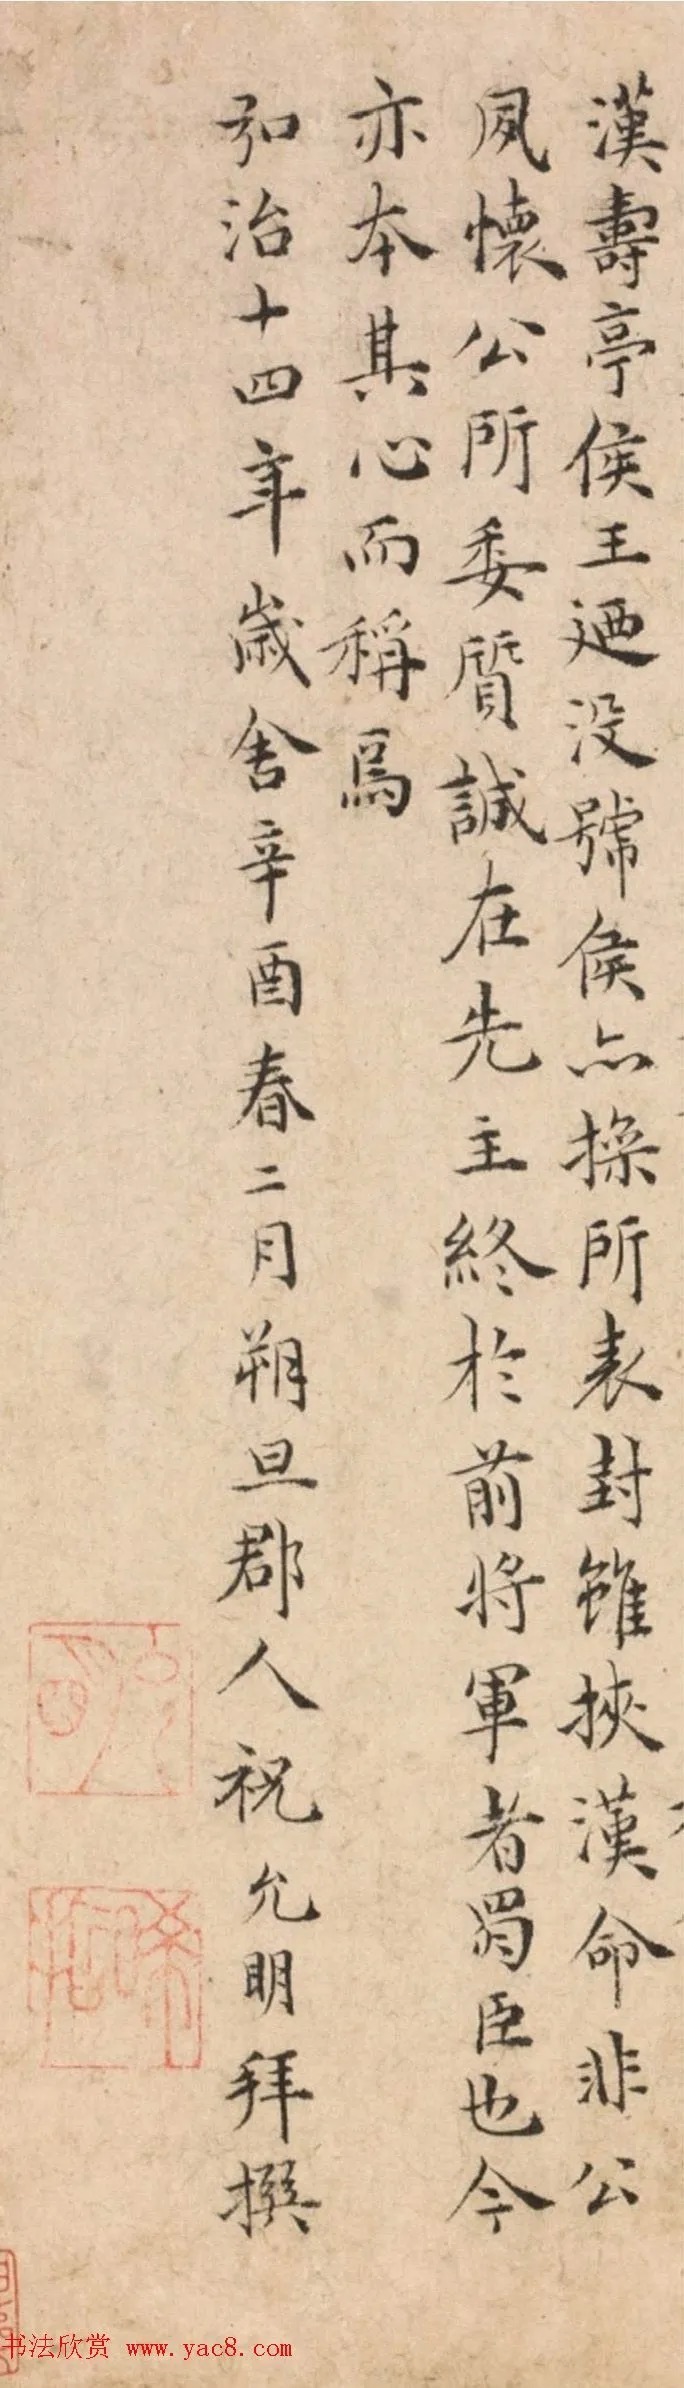 漢壽亭侯王迺没號侯亦操所表封雖挾漢命非公
夙懷公所委質誠在先主終於前將軍者蜀臣也今
亦本其心而稱焉
弘治十四年歲舍辛酉春二月朔旦郡人祝允明拜撰
书法欣赏 www.yac8.com